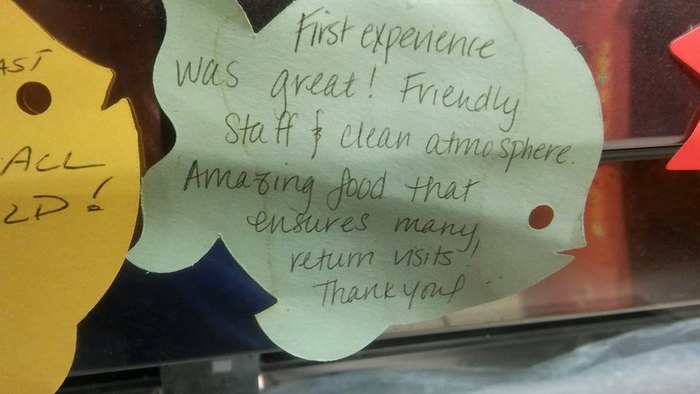 AST
ALL
LD!
First experience
was great! Friendly
Staff & clean atmosphere.
Amazing food that
ensures many
return visits!
Thank you!